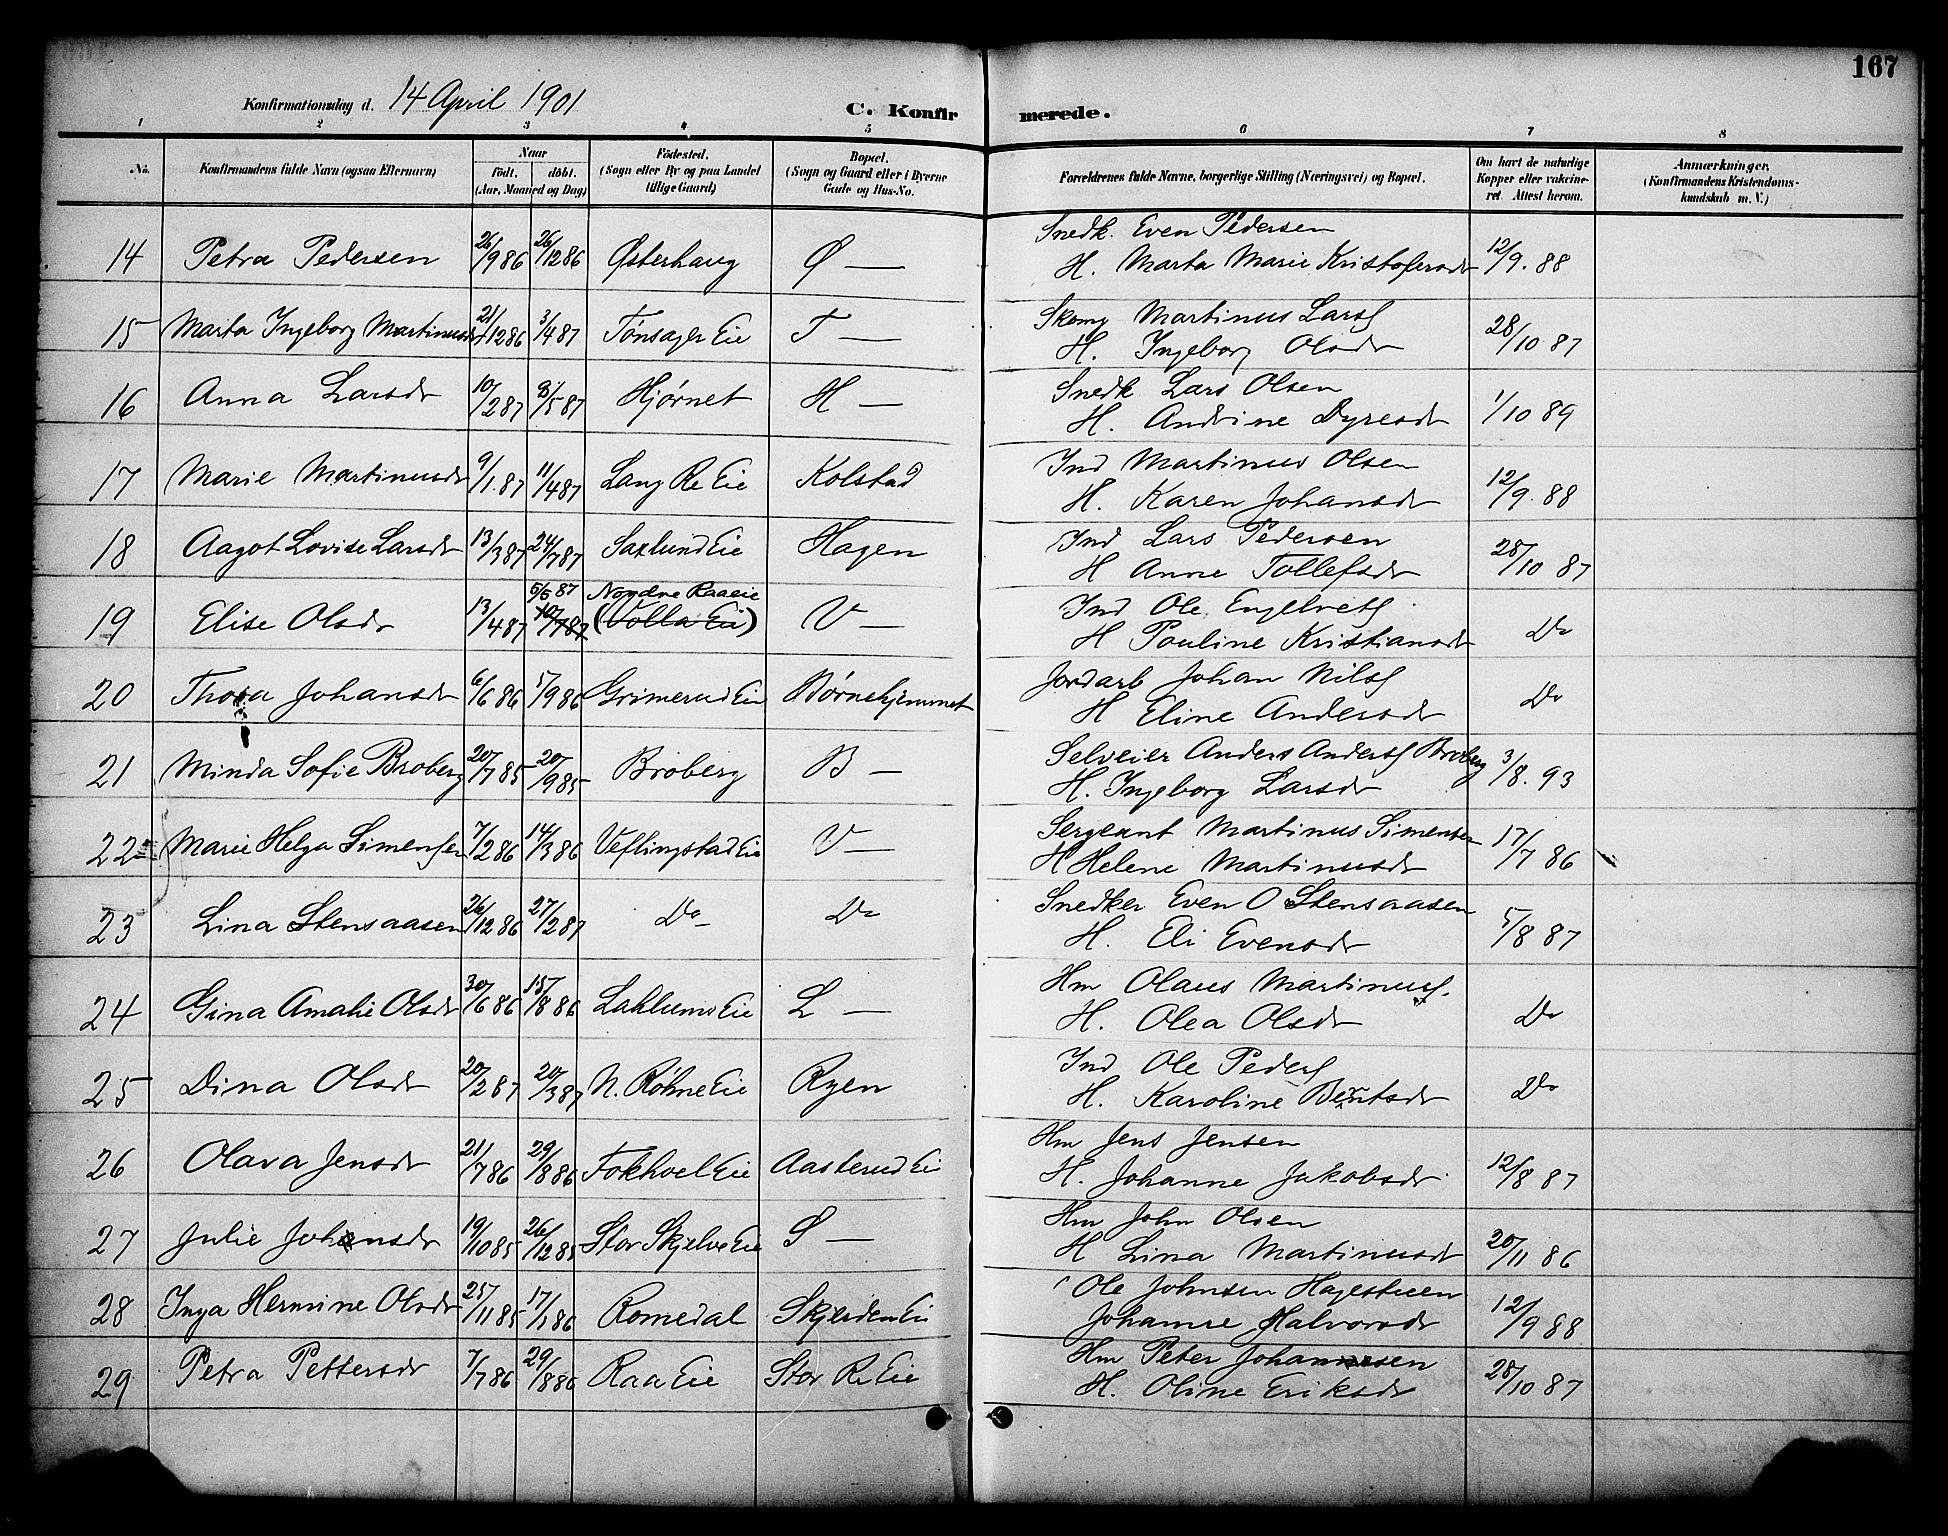 167
Konfirmationsdag d. 14 April 1901
C. Konfirmerede.
1 2 3 4 5 6 7 8
No. Konfirmandens fulde Navn (ogsaa Efternavn) Naar født. døbt. (Aar, Maaned og Dag) Fødested. (Sogn eller By og paa Landet tillige Gaard) Bopæl. (Sogn og Gaard eller i Byerne Gade og Hus-No. Forældrenes fulde Navne, borgerlige Stilling (Næringsvei) og Bopæl. Om havt de naturlige Kopper eller vakcineret. Attest herom. Anmærkninger. (Konfirmandens Kristendomskundskab m. V.)
14 Petra Pedersen 26/9 86 26/12 86 Østerhaug Ø — Snedk. Even Pedersen 12/9. 88
H. Marta Marie Kristofersdr
15 Marta Ingeborg Martinusdr 21/12 86 3/4 87 Tønsager Eie T — Skomg Martinus Larss 28/10 87
H. Ingeborg Olsdr
16 Anna Larsdr 10/2 87 8/5 87 Hjørnet H — Snedk Lars Olsen 1/10 89
H. Andrine Dyresdr
17 Marie Martinusdr 9/1. 87 11/4 87 Lang Re Eie Kolstad Ind Martinus Olsen 12/9. 88
H. Karen Johansdr
18 Aagot Lovise Larsdr 13/3 87 24/7 87 Saxlund Eie Hagen Ind Lars Pedersen 28/10 87
H Anne Tollefsdr
5/6 87 Nordre Raaeie
19 Elise Olsdr 13/4 87 10/7 87 (Volla Ei) V — Ind Ole Engelrets Do
H Pauline Kristiansdr
20 Thora Johansdr 6/6 86 5/9 86 Grimerud Eie Børnehjemmet Jordarb Johan Nilss Do
H Eline Andersdr
21 Minda Sofie Broberg 20/7 85 20/9 85 Broberg B — Selveier Anders Anderss Broberg 3/8. 93
H. Ingeborg Larsdr
22 Marie Helga Simensen 7/2 86 14/3 86 Veflingstad Eie V — Sergeant Martinus Simensen 17/7 86
H Helene Martinusdr
23 Lina Stensaasen 26/12 86 27/2 87 Do Do Snedker Even O Stensaasen 5/8 87
H. Eli Evensdr
24 Gina Amalie Olsdr 30/6 86 15/8 86 Lahlums Eie L — Hm Olaus Martinuss. Do
H. Olea Olsdr
25 Dina Olsdr 20/2 87 20/3 87 N. Røhne Eie Ryen Ind Ole Peders Do
H. Karoline Berntsdr
26 Olava Jensdr 21/7 86 29/8 86 Fokhvel Eie Aasterud Ei Hm Jens Jensen 12/8 87
H. Johanne Jakobsdr
27 Julie Johnsdr 19/10 85 26/12 85 Stor Skjelve Eie S — Hm John Olsen 20/11 86
H Lina Martinusdr
28 Inga Hermine Olsdr 25/11 85 17/1 86 Romedal Skjerden Ei Ole Johnsen Hagestuen 12/9 88
Johanne Halvorsdr
29 Petra Pettersdr 7/7 86 29/8 86 Raa Eie Stor Re Eie Hm Peter Johannesen 28/10 87
H. Oline Eriksdr